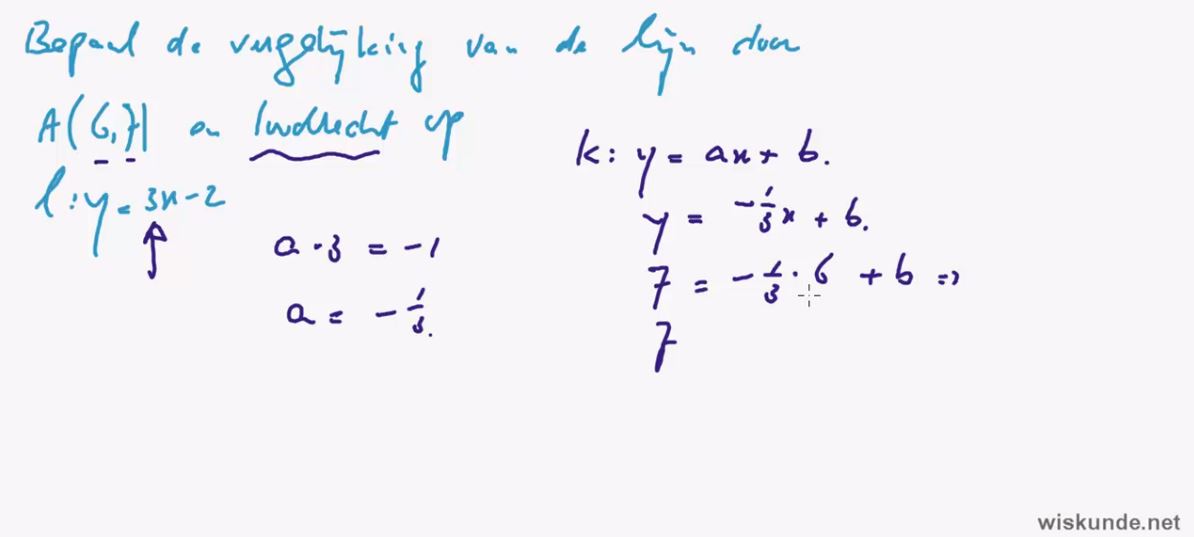 Bepaal de vergelijking van de lijn door
A(6,7) en loodrecht op
l: y = 3x - 2
a · 3 = -1
a = -1/3.
k: y = ax + b.
y = -1/3 x + b.
7 = -1/3 · 6 + b =>
7
wiskunde.net